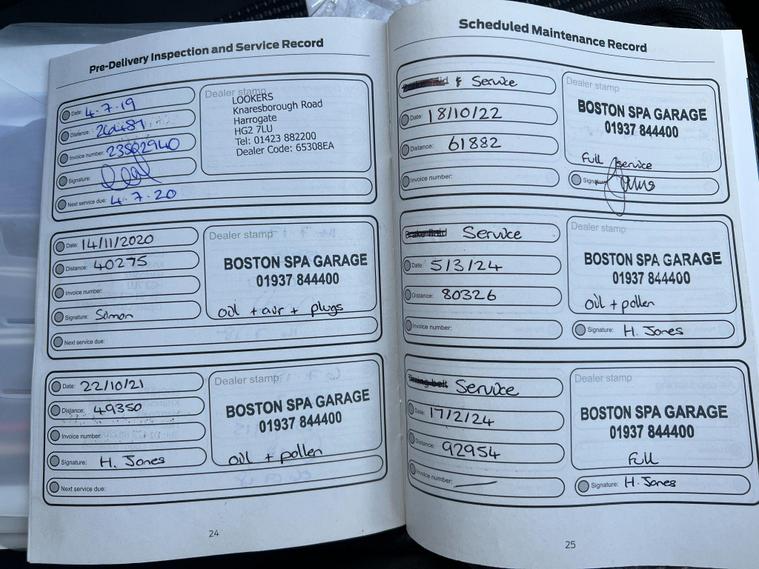 Pre-Delivery Inspection and Service Record
Date: 4.7.19
Distance: 26489
Invoice number: 23502940
Signature:
Next service due: 4.7.20
Dealer stamp
LOOKERS
Knaresborough Road
Harrogate
HG2 7LU
Tel: 01423 882200
Dealer Code: 65308EA
Date: 14/11/2020
Distance: 40275
Invoice number:
Signature: Simon
Next service due:
Dealer stamp
BOSTON SPA GARAGE
01937 844400
oil + air + plugs
Date: 22/10/21
Distance: 49350
Invoice number:
Signature: H. Jones
Next service due:
Dealer stamp
BOSTON SPA GARAGE
01937 844400
oil + pollen
24
Scheduled Maintenance Record
& Service
Date: 18/10/22
Distance: 61882
Invoice number:
Dealer stamp
BOSTON SPA GARAGE
01937 844400
Full service
Signature:
Service
Date: 5/3/24
Distance: 80326
Invoice number:
Dealer stamp
BOSTON SPA GARAGE
01937 844400
oil + pollen
Signature: H. Jones
Service
Date: 17/2/24
Distance: 92954
Invoice number:
Dealer stamp
BOSTON SPA GARAGE
01937 844400
Full
Signature: H. Jones
25